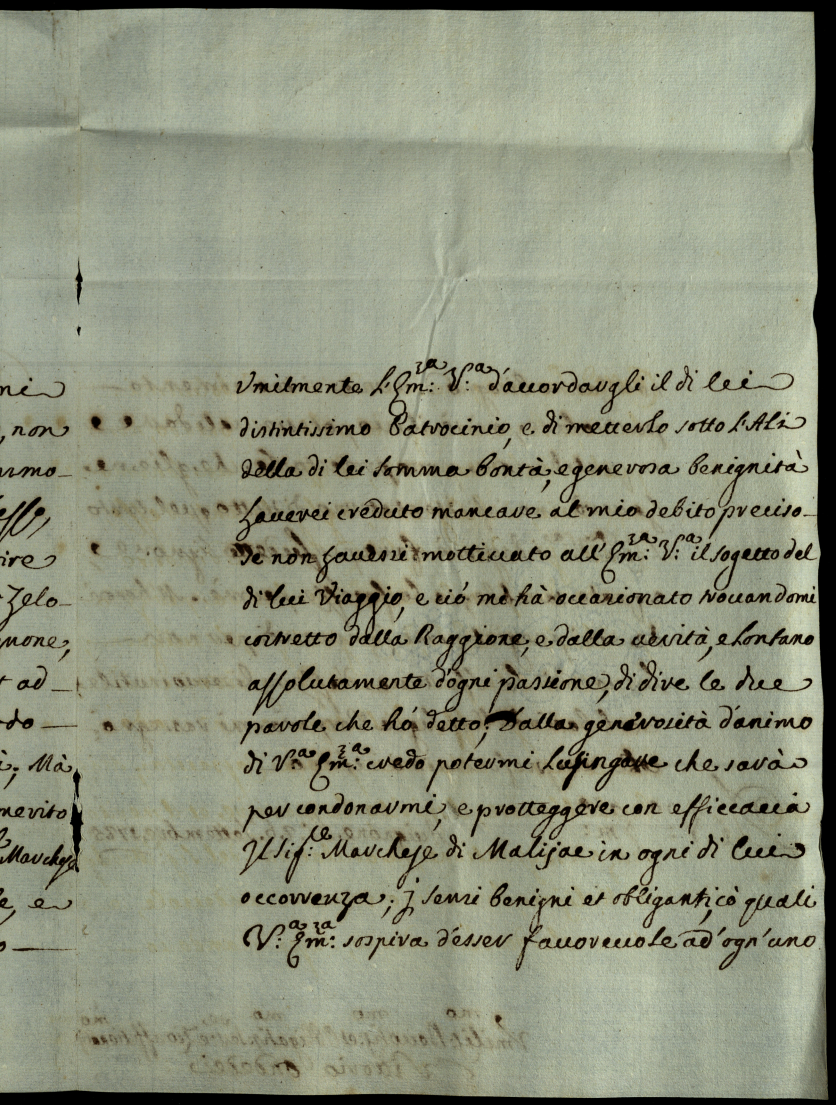 ni
, non
rmo_
esso,
ire
Zelo_
mone,
t ad_
do—
i; Mà
merito
Marchese
le, e
o—
Vmilmente L'Em:za V:a d'accordargli il di lei
distintissimo Patrocinio, e di metterlo sotto L'Ali
della di lei somma bontà, e generosa benignità
Haverei creduto mancare al mio debito preciso_
se non havessi mottivato all'Em:za V:a il sogetto del
di lui Viaggio, e ciò mi hà occasionato trovandomi
costretto dalla Raggione, e dalla verità, e Lontano
assolutamente d'ogni passione, di dire le due
parole che hò detto; Dalla generosità d'animo
di V:a Em:za credo potermi Lusingare che sarà
per condonarmi, e protteggere con efficacia
Jl Sig:re Marchese di Malijac in ogni di lui
occorrenza; j sensi benigni et obliganti, cò quali
V:a Em:za sospira d'esser favorevole ad'ogn'uno